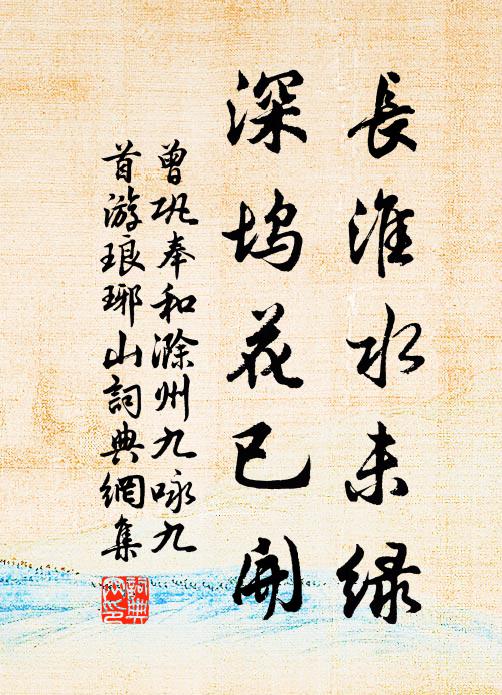 長淮水未緑
深坞花已開
曾巩奉和滁州九咏九
首游琅琊山詞典網集